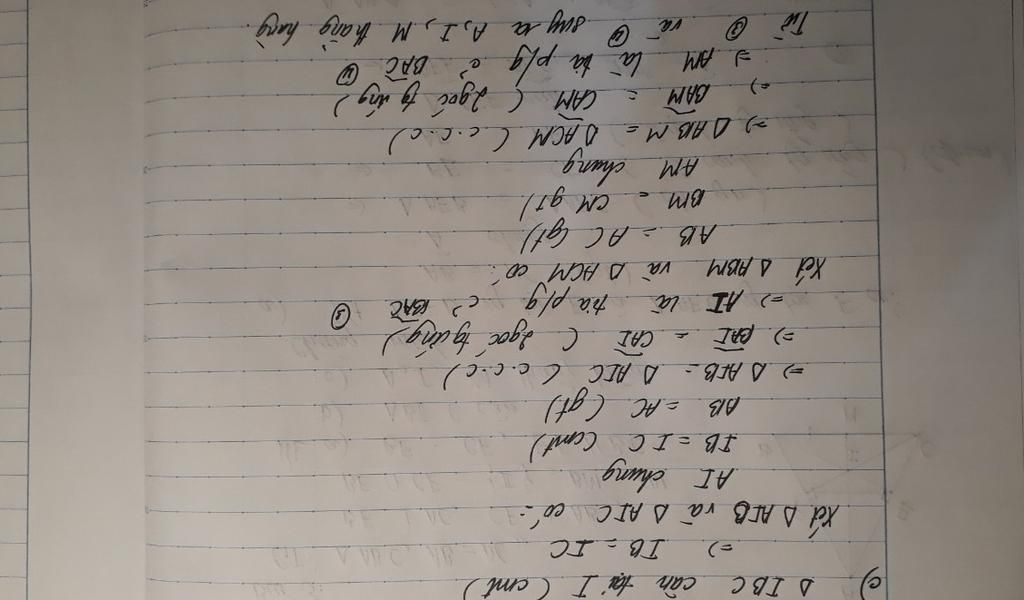 c) Δ IBC cân tại I (cmt)
=> IB = IC
Xét Δ AIB và Δ AIC có:
AI chung
IB = IC (cmt)
AB = AC (gt)
=> Δ AIB = Δ AIC (c.c.c)
=> BAI = CAI ( 2góc tg ứng)
=> AI là tia p/g củ BAC ③
Xét Δ ABM và Δ ACM có:
AB = AC (gt)
BM = CM gt)
AM chung
=> Δ ABM = Δ ACM ( c.c.c)
=> BAM = CAM ( 2góc tg ứng)
=> AM là tia p/g củ BAC ④
Từ ③ và ④ suy ra A, I, M thẳng hàng.